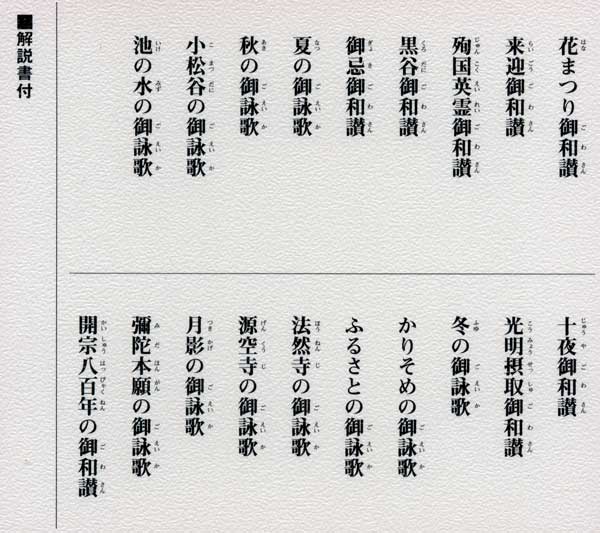 花まつり御和讃
来迎御和讃
殉国英霊御和讃
黒谷御和讃
御忌御和讃
夏の御詠歌
秋の御詠歌
小松谷の御詠歌
池の水の御詠歌
十夜御和讃
光明摂取御和讃
冬の御詠歌
かりそめの御詠歌
ふるさとの御詠歌
法然寺の御詠歌
源空寺の御詠歌
月影の御詠歌
彌陀本願の御詠歌
開宗八百年の御和讃
■解説書付